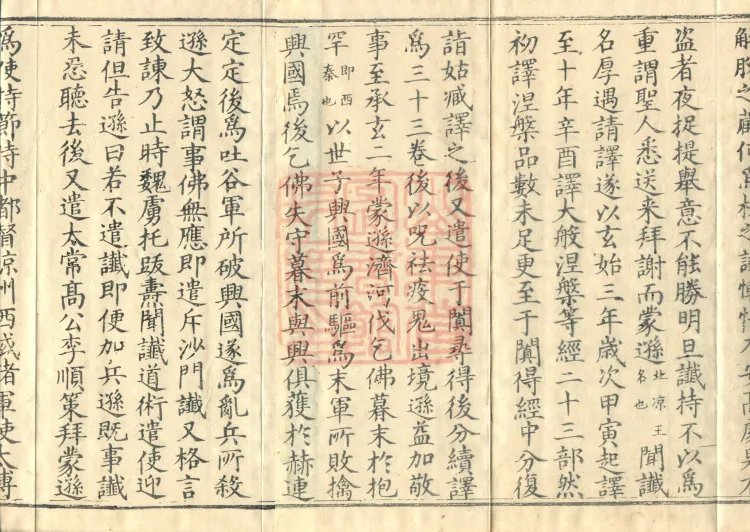 盜者夜捉提舉意不能勝明旦讖持不以爲
重謂聖人悉送来拜謝而蒙遜北凉王名也聞讖
名厚遇請譯遂以玄始三年歲次甲寅起譯
至十年辛酉譯大般涅槃等經二十三部然
初譯涅槃品數未足更至于闐得經中分復
詣姑臧譯之後又遣使于闐尋得後分續譯
爲三十三卷後以咒祛疫鬼出境遜益加敬
事至承玄二年蒙遜濟河伐乞佛暮末於抱
罕即西秦也以世子興國爲前驅爲末軍所敗擒
興國焉後乞佛失守暮末與興俱獲於赫連
定定後爲吐谷軍所破興國遂爲亂兵所殺
遜大怒謂事佛無應即遣斥沙門讖又格言
致諫乃止時魏虜托跋燾聞讖道術遣使迎
請但告遜曰若不遣讖即便加兵遜既事讖
未忍聽去後又遣太常高公李順策拜蒙遜
爲使持節侍中都督凉州西域諸軍使太傅